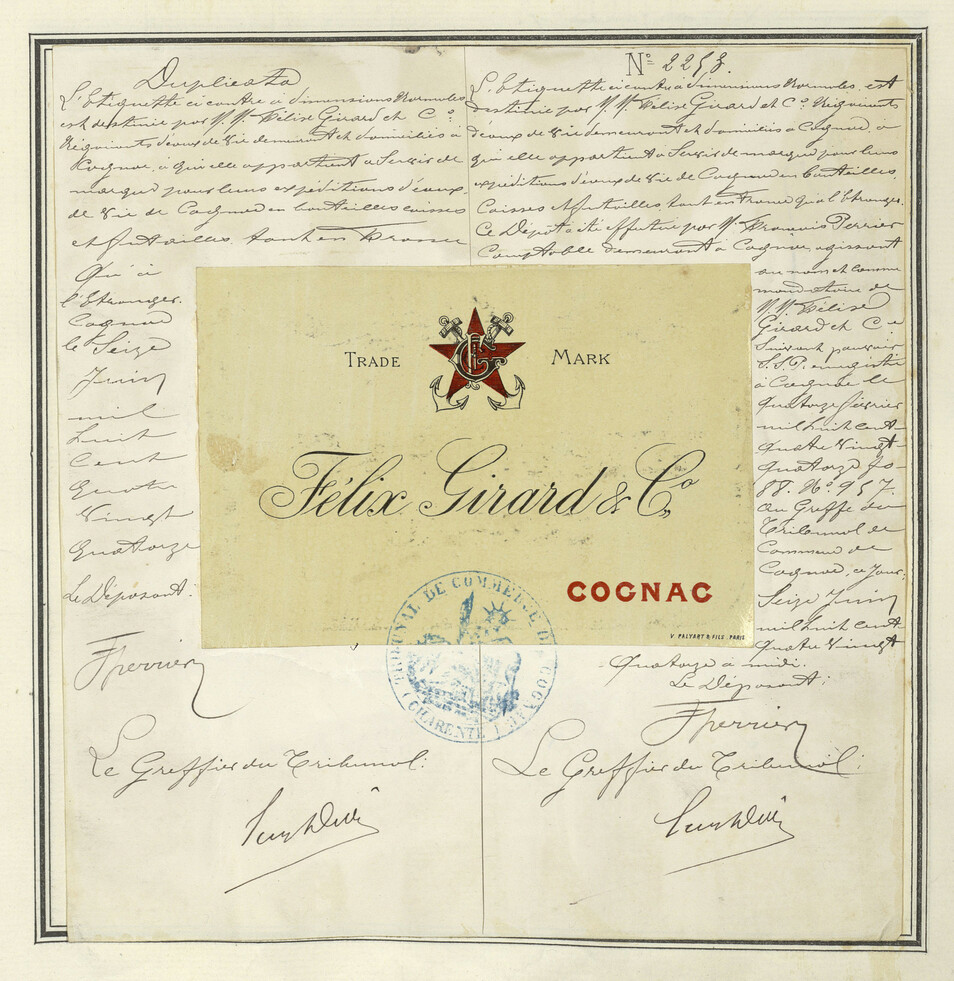 Duplicata
L'Etiquette ci contre à dimensions Normales
est destinée par M.M. Félix Girard et Cº
Négociants d'eaux de vie demeurant et domiciliés à
Cognac, à qui elle appartient à Servir de
marque pour leurs expéditions d'eaux
de Vie de Cognac en bouteilles caisses
et futailles, tant en France
Qu'à
l'Etranger.
Cognac
le Seize
Juin
mil
huit
cent
quatre
Vingt
Quatorze
Le Déposant:
Fperrier
Le Greffier du Tribunal:
Nº 2253.
L'Etiquette ci contre à dimensions Normales, est
destinée par M.M. Félix Girard et Cº Négociants
d'eaux de Vie demeurant et domiciliés à Cognac, à
qui elle appartient à Servir de marque pour leurs
expéditions d'eaux de Vie de Cognac en bouteilles,
Caisses et futailles tant en France qu'à l'Etranger.
Ce Dépôt a été effectué par M. François Perrier
Comptable demeurant à Cognac, agissant
au nom et comme
mandataire de
M.M. Félix
Girard et Cie
Suivant pouvoir
S.S.P. enregistré
à Cognac le
Quatorze février
mil huit cent
quatre vingt
quatorze fo
88. Nº 957.
Au Greffe du
Tribunal de
Commerce de
Cognac, ce Jour:
Seize Juin
mil huit cent
Quatre Vingt
Quatorze à midi.
Le Déposant:
Fperrier
Le Greffier du Tribunal:
TRADE MARK
Félix Girard & Co
COGNAC
V. PALYART & FILS. PARIS
TRIBUNAL DE COMMERCE DE COGNAC
(CHARENTE)